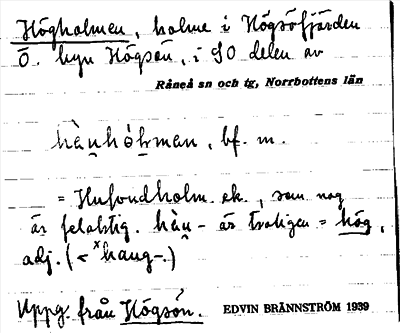 Högholmen, holme i Högsöfjärden
Ö. byn Högsön, i SO delen av
Råneå sn och tg, Norrbottens län
hàu̯hól̥man, bf. m.
= Hufvudholm. ek., som nog
är felaktig. hàu̯- är troligen = hög,
adj. (< *haug-.)
Uppg. från Högsön. EDVIN BRÄNNSTRÖM 1939